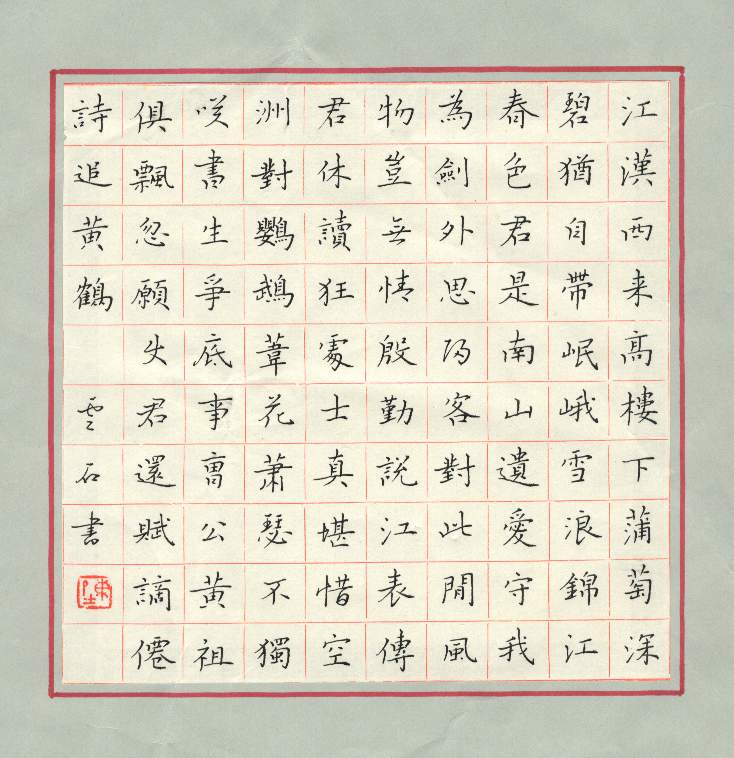 江漢西来高樓下蒲萄深
碧猶自帶岷峨雪浪錦江
春色君是南山遺愛守我
為劍外思歸客對此間風
物豈無情殷勤說江表傳
君休讀狂處士真堪惜空
洲對鸚鵡葦花蕭瑟不獨
咲書生爭底事曹公黃祖
俱飄忽願使君還賦謫僊
詩追黃鶴 雲石書